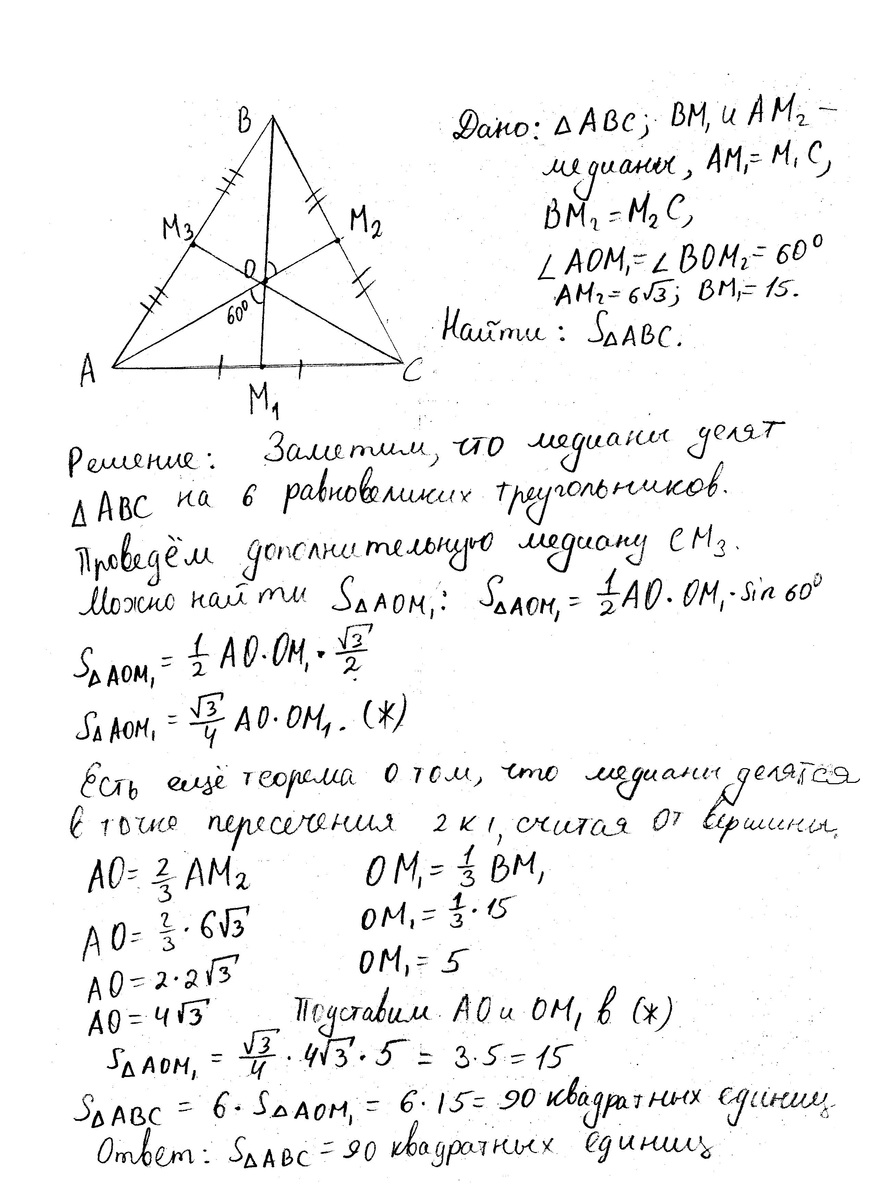 B
M₃
M₂
O
60⁰
A
C
M₁
Дано: △ ABC; BM₁ и AM₂ –
медианы, AM₁ = M₁C,
BM₂ = M₂C,
∠AOM₁ = ∠BOM₂ = 60⁰
AM₂ = 6√3; BM₁ = 15.
Найти: S△ABC.
Решение: Заметим, что медианы делят
△ABC на 6 равновеликих треугольников.
Проведём дополнительную медиану CM₃.
Можно найти S△AOM₁: S△AOM₁ = 1/2 AO · OM₁ · sin 60⁰
S△AOM₁ = 1/2 AO · OM₁ · √3/2
S△AOM₁ = √3/4 AO · OM₁. (*)
Есть ещё теорема о том, что медианы делятся
в точке пересечения 2 к 1, считая от вершины.
AO = 2/3 AM₂ OM₁ = 1/3 BM₁
AO = 2/3 · 6√3 OM₁ = 1/3 · 15
AO = 2 · 2√3 OM₁ = 5
AO = 4√3 Подставим AO и OM₁ в (*)
S△AOM₁ = √3/4 · 4√3 · 5 = 3 · 5 = 15
S△ABC = 6 · S△AOM₁ = 6 · 15 = 90 квадратных единиц
Ответ: S△ABC = 90 квадратных единиц